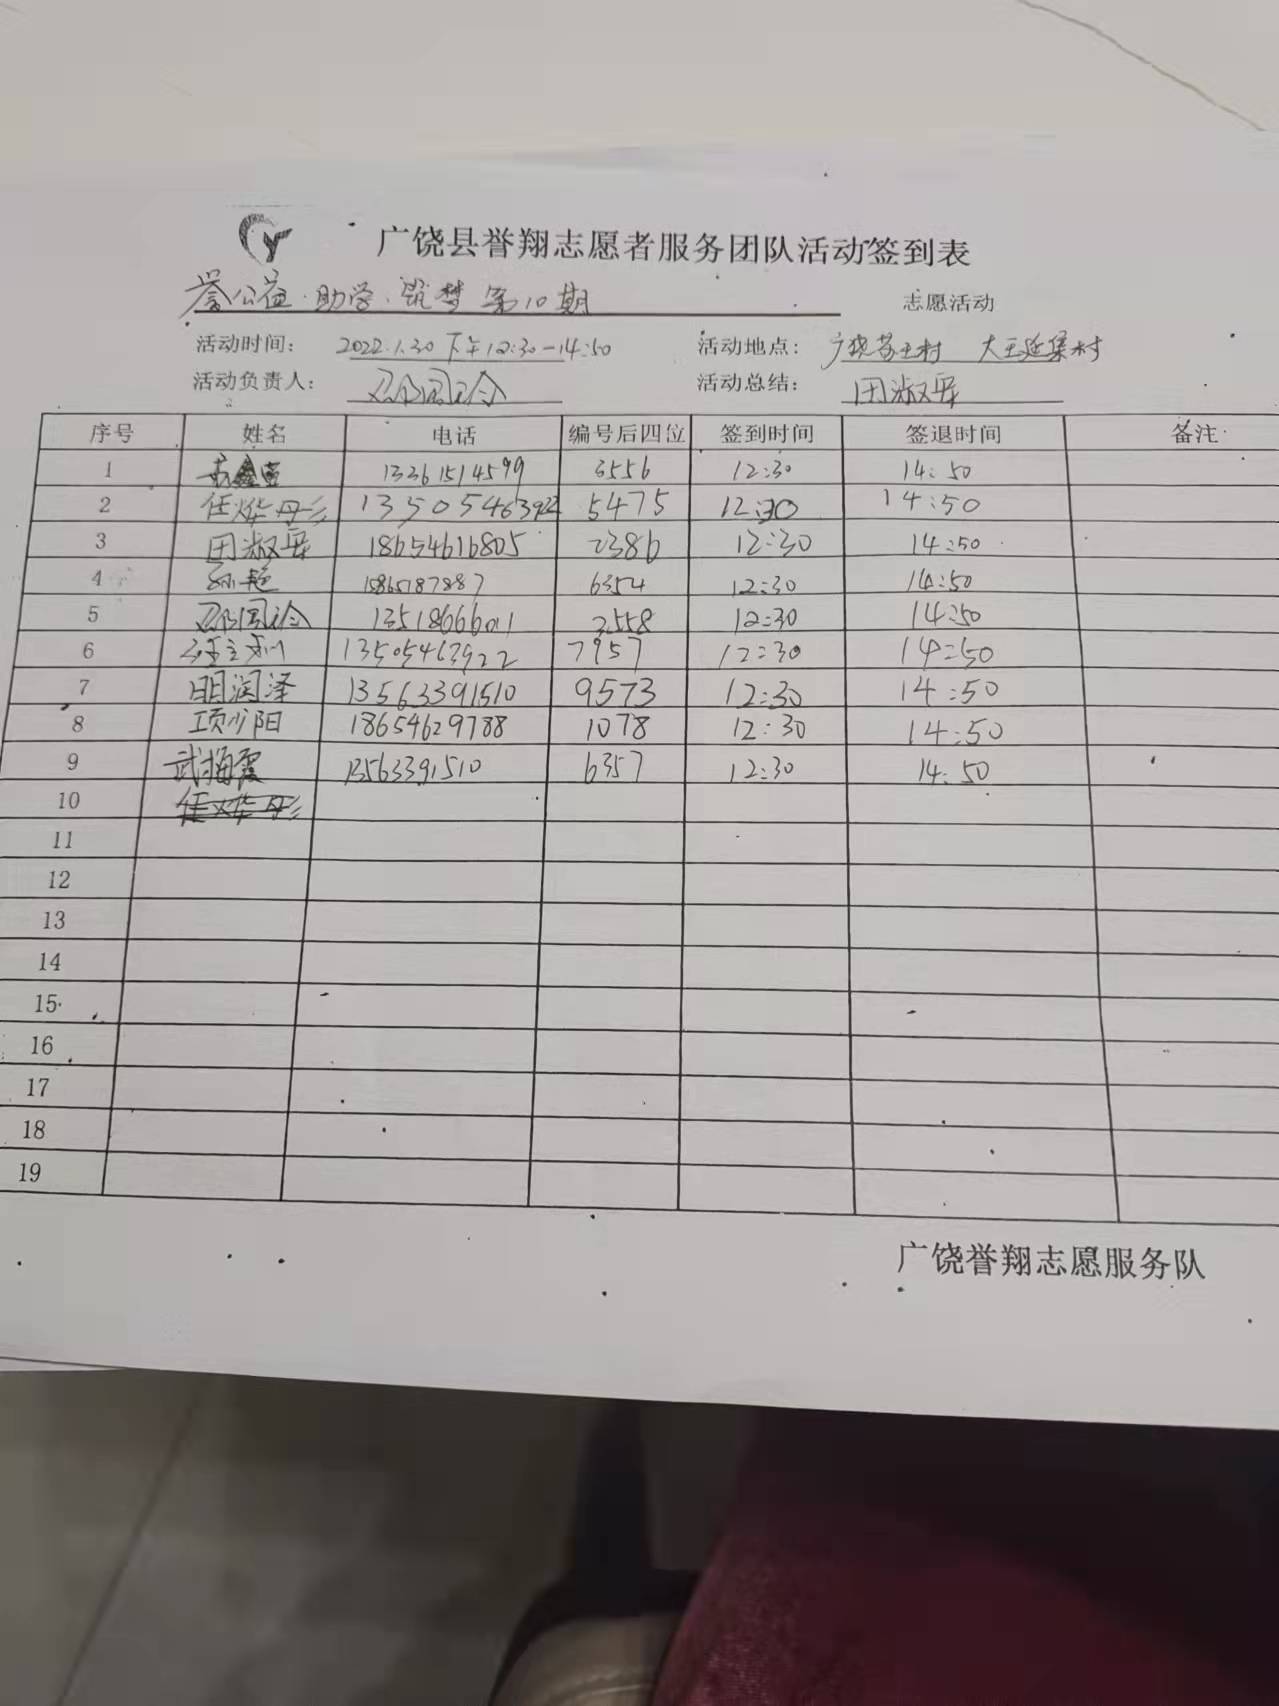 广饶县誉翔志愿者服务团队活动签到表
誉公益·助学·筑梦 第10期 志愿活动
活动时间： 2022.1.30 下午12:30-14:50 活动地点： 广饶 王村 大王延集村
活动负责人： 活动总结： 田淑
序号 姓名 电话 编号后四位 签到时间 签退时间 备注
1 13361514599 3556 12:30 14:50
2 任烨丹彡 13505463922 5475 12:30 14:50
3 田淑 18654616805 2386 12:30 14:50
4 孙艳 15865187887 6354 12:30 14:50
5 12:30 14:50
6 13505463922 7957 12:30 14:50
7 明润泽 13563391510 9573 12:30 14:50
8 项少阳 18654629788 1078 12:30 14:50
9 武梅霞 13563391510 6357 12:30 14:50
10
11
12
13
14
15
16
17
18
19
广饶誉翔志愿服务队